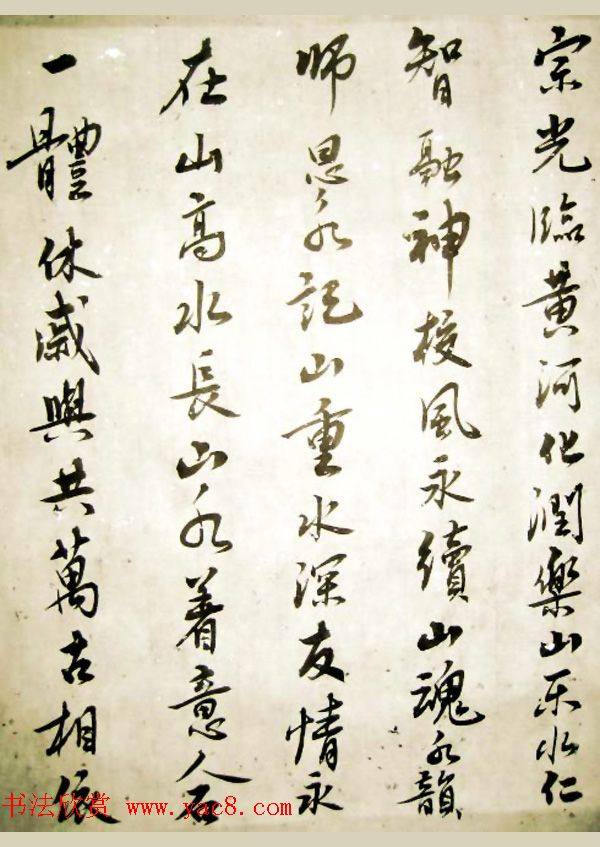 宗光臨黄河化潤樂山乐水仁
智融神校風永續山魂水韻
师恩永記山重水深友情永
在山高水長山水着意人石
一體休戚與共萬古相依
书法欣赏 www.yac8.com